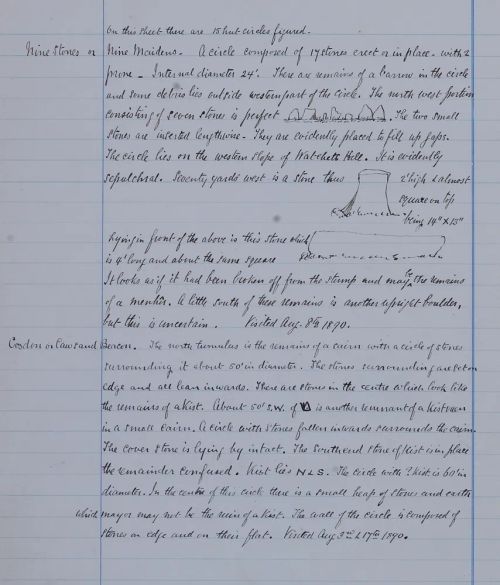 On this sheet there are 15 hut circles figured.
Nine Stones or Nine Maidens. A circle composed of 17 stones erect or in place. with 2
prone - Internal diameter 24'. There are remains of a barrow in the circle
and some debris lies outside western part of the circle. The north west portion
consisting of seven stones is perfect The two small
stones are inserted lengthwise. They are evidently placed to fill up gaps.
The circle lies on the western slope of Watchets Hill. It is evidently
sepulchral. Seventy yards west is a stone thus 2' high & almost
square on top
being 14" x 15"
Lying in front of the above is this stone which
is 4' long and about the same square
It looks as if it had been broken off from the stump and may be the remains
of a menhir. A little south of these remains is another upright boulder,
but this is uncertain. Visited Aug. 8th 1890.
Cosdon or Cawsand Beacon. The north tumulus is the remains of a cairn with a circle of stones
surrounding it about 50' in diameter. The stones surrounding are set on
edge and all lean inwards. There are stones in the centre which look like
the remains of a Kist. About 50' S.W. of is another remnant of a Kistvaen
in a small cairn. A circle with stones fallen inwards surrounds the cairn.
The cover stone is lying by intact. The south end stone of Kist is in place
the remainder confused. Kist lies N & S. The circle with ? Kist is 60' in
diameter. In the centre of this circle there is a small heap of stones and earth
which may or may not be the ruin of a Kist. The wall of the circle is composed of
stones on edge and on their flat. Visited Aug 3rd & 17th 1890.